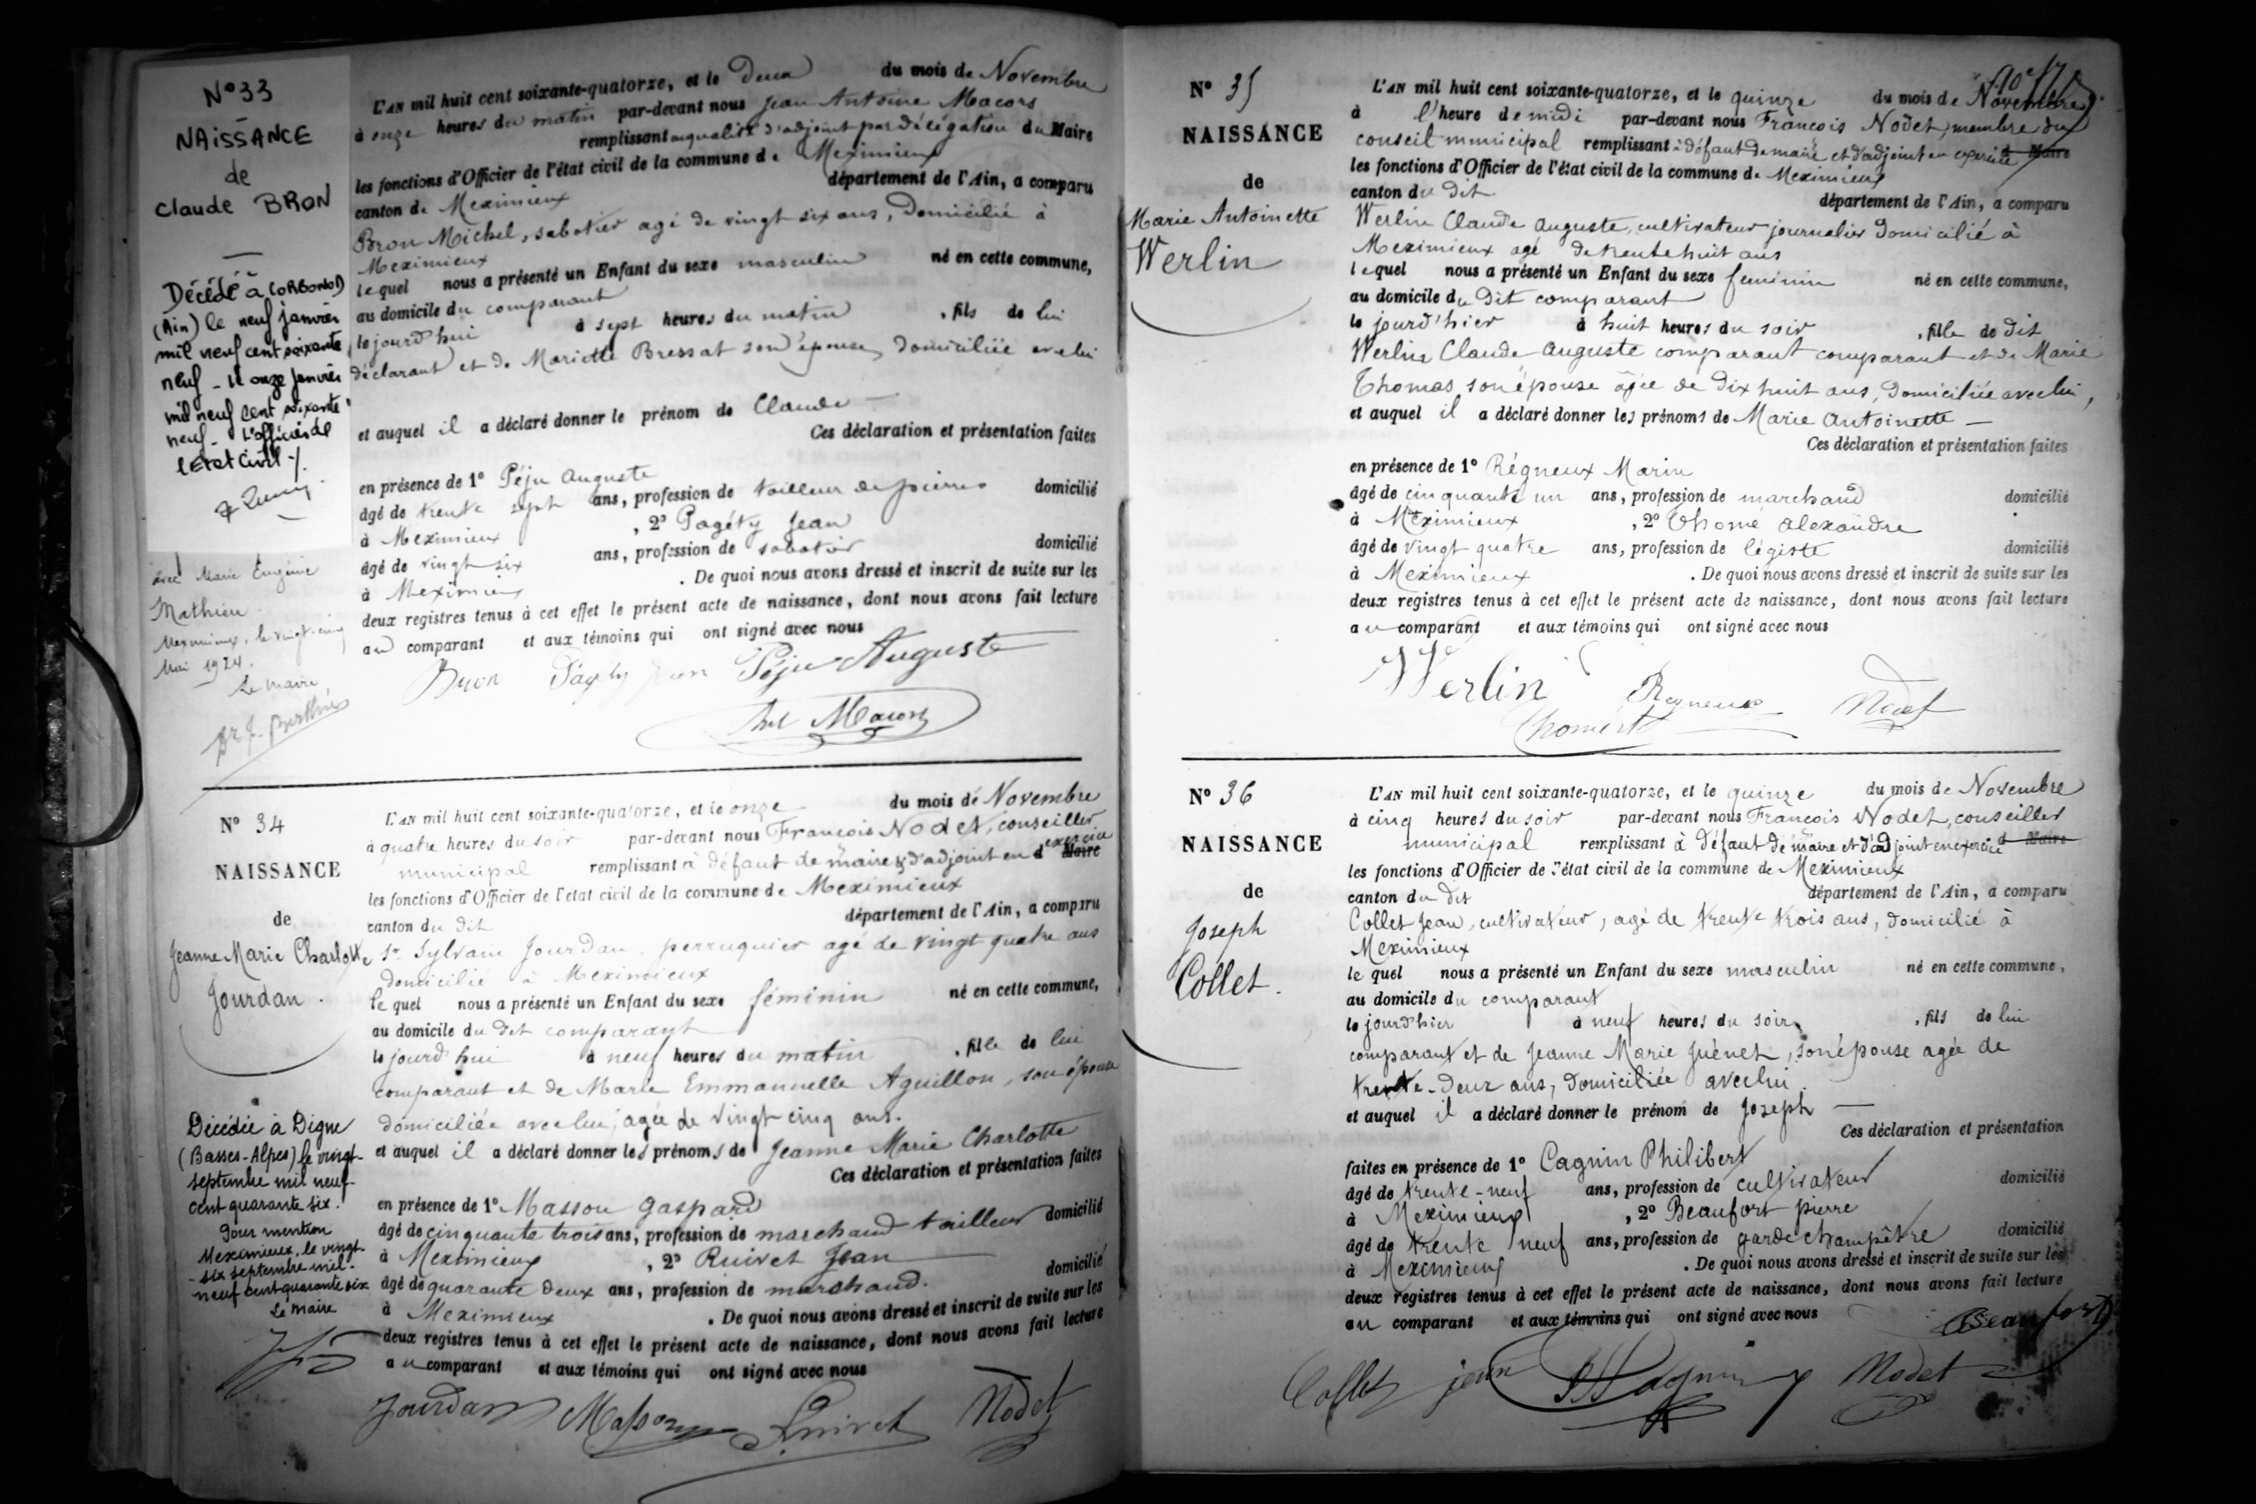 N° 33
NAISSANCE
de
Claude BRON
Décédé à CORBONOD
(Ain) le neuf janvier
mil neuf cent soixante
neuf - le onze janvier
mil neuf cent soixante
neuf - L'officier de
l'Etat Civil
avec Marie Eugénie
Mathieu
Meximieux, le vingt-cinq
Mai 1924.
Le Maire,
L'AN mil huit cent soixante-quatorze, et le Deux du mois de Novembre
à onze heures du matin par-devant nous Jean Antoine Macors
remplissant en qualité d'adjoint par délégation du Maire
les fonctions d'Officier de l'état civil de la commune de Meximieux
canton de Meximieux département de l'Ain, a comparu
Bron Michel, sabotier agé de vingt six ans, Domicilié à
Meximieux
lequel nous a présenté un Enfant du sexe masculin né en cette commune,
au domicile du comparant
le jourd'hui à sept heures du matin, fils de lui
déclarant et de Mariette Bressat son épouse, domiciliée avec lui
et auquel il a déclaré donner le prénom de Claude —
Ces déclaration et présentation faites
en présence de 1° Péju Auguste
âgé de trente sept ans, profession de tailleur de pierres domicilié
à Meximieux, 2° Pagéty Jean
âgé de vingt six ans, profession de sabotier domicilié
à Meximieux. De quoi nous avons dressé et inscrit de suite sur les
deux registres tenus à cet effet le présent acte de naissance, dont nous avons fait lecture
au comparant et aux témoins qui ont signé avec nous
Bron Pagéty Jean Péju Auguste
Ant Macors
N° 34
NAISSANCE
de
Jeanne Marie Charlotte
Jourdan.
Décédée à Digne
(Basses-Alpes) le vingt
septembre mil neuf
cent quarante six.
Pour mention
Meximieux, le vingt
-six septembre mil
neuf cent quarante six
Le Maire
L'AN mil huit cent soixante-quatorze, et le onze du mois de Novembre
à quatre heures du soir par-devant nous François Nodet, conseiller
municipal remplissant à défaut de maire & d'adjoint en exercice d Maire
les fonctions d'Officier de l'état civil de la commune de Meximieux
canton du dit département de l'Ain, a comparu
Sr Sylvain Jourdan, perruquier agé de vingt quatre ans
domicilié à Meximieux
le quel nous a présenté un Enfant du sexe féminin né en cette commune,
au domicile du dit comparant
le jourd'hui à neuf heures du matin, fille de lui
comparant et de Marie Emmanuelle Aguillon, son épouse
domiciliée avec lui, agée de vingt cinq ans.
et auquel il a déclaré donner les prénoms de Jeanne Marie Charlotte
Ces déclaration et présentation faites
en présence de 1° Masson Gaspard
âgé de cinquante trois ans, profession de marchand tailleur domicilié
à Meximieux, 2° Ruivet Jean
âgé de quarante deux ans, profession de marchand. domicilié
à Meximieux. De quoi nous avons dressé et inscrit de suite sur les
deux registres tenus à cet effet le présent acte de naissance, dont nous avons fait lecture
au comparant et aux témoins qui ont signé avec nous
Jourdan Masson Ruivet Nodet
N° 35
NAISSANCE
de
Marie Antoinette
Werlin
L'AN mil huit cent soixante-quatorze, et le quinze du mois de Novembre
à l'heure de midi par-devant nous François Nodet, membre du
conseil municipal remplissant à défaut de maire et d'adjoint en exercice d Maire
les fonctions d'Officier de l'état civil de la commune de Meximieux
canton du dit département de l'Ain, a comparu
Werlin Claude Auguste, cultivateur journalier domicilié à
Meximieux agé de trente huit ans
lequel nous a présenté un Enfant du sexe féminin né en cette commune,
au domicile du dit comparant
le jourd'hier à huit heures du soir, fille de dit
Werlin Claude Auguste comparant comparant et de Marie
Thomas son épouse âgée de dix huit ans, domiciliée avec lui,
et auquel il a déclaré donner les prénoms de Marie Antoinette —
Ces déclaration et présentation faites
en présence de 1° Régneux Marin
âgé de cinquante un ans, profession de marchand domicilié
à Meximieux, 2° Thomé Alexandre
âgé de vingt quatre ans, profession de légiste domicilié
à Meximieux. De quoi nous avons dressé et inscrit de suite sur les
deux registres tenus à cet effet le présent acte de naissance, dont nous avons fait lecture
au comparant et aux témoins qui ont signé avec nous
Werlin Regneux Nodet
N° 36
NAISSANCE
de
Joseph
Collet.
L'AN mil huit cent soixante-quatorze, et le quinze du mois de Novembre
à cinq heures du soir par-devant nous François Nodet, conseiller
municipal remplissant à défaut de maire et d'adjoint en exercice d Maire
les fonctions d'Officier de l'état civil de la commune de Meximieux
canton du dit département de l'Ain, a comparu
Collet Jean, cultivateur, agé de trente trois ans, domicilié à
Meximieux
le quel nous a présenté un Enfant du sexe masculin né en cette commune,
au domicile du comparant
le jourd'hier à neuf heures du soir, fils de lui
comparant et de Jeanne Marie Juénet, son épouse agée de
trente-deux ans, domiciliée avec lui.
et auquel il a déclaré donner le prénom de Joseph —
Ces déclaration et présentation
faites en présence de 1° Cagnin Philibert
âgé de trente-neuf ans, profession de cultivateur domicilié
à Meximieux, 2° Beaufort pierre
âgé de trente neuf ans, profession de garde champêtre domicilié
à Meximieux. De quoi nous avons dressé et inscrit de suite sur les
deux registres tenus à cet effet le présent acte de naissance, dont nous avons fait lecture
au comparant et aux témoins qui ont signé avec nous
Beaufort
Collet jean Cagnin Nodet